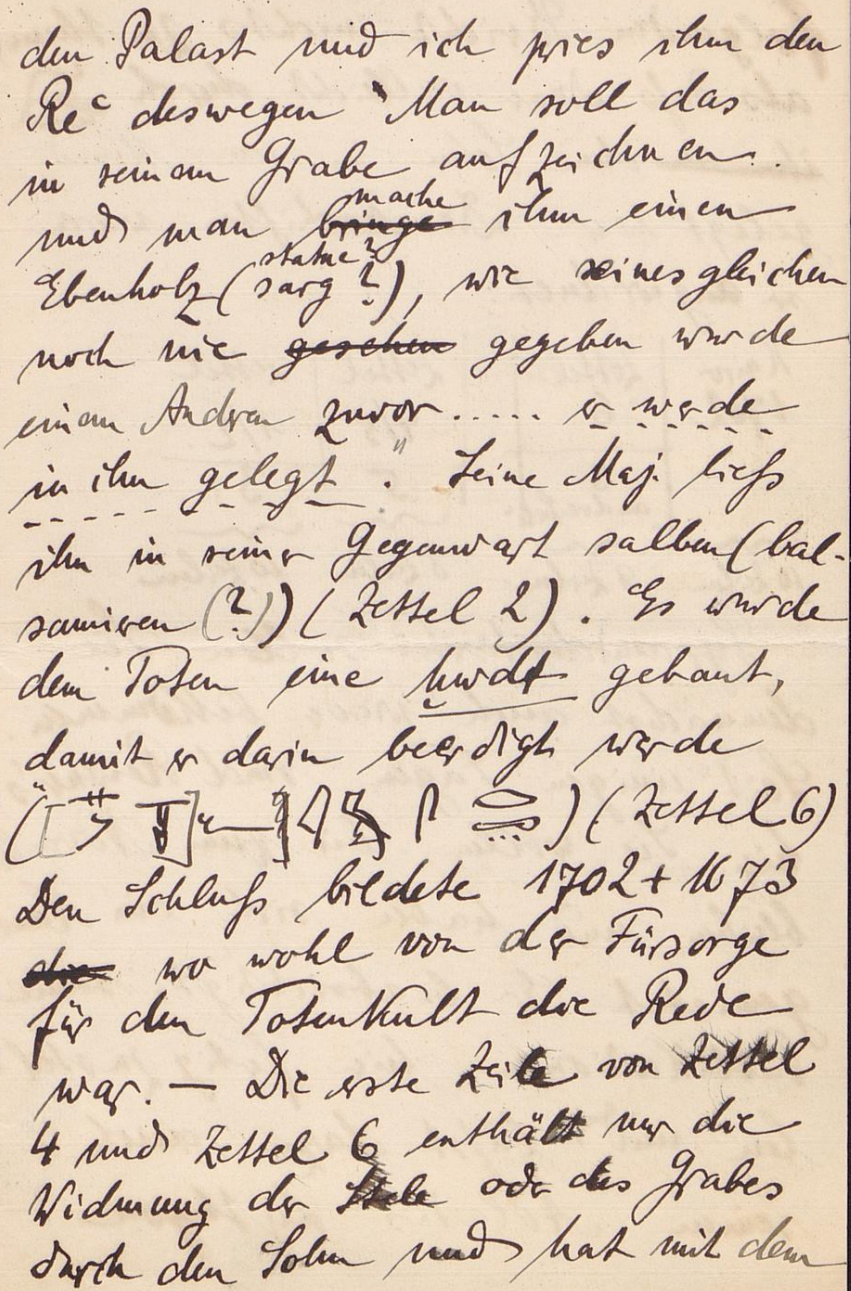 den Palast und ich pries ihm den
Reᶜ deswegen "Man soll das
in seinem Grabe aufzeichnen.
und man ~~bringe~~ mache ihm einen
Ebenholz (sarg ?) statue ?), wie seinesgleichen
noch nie ~~gesehen~~ gegeben wurde
einem Andren zuvor ..... er werde
in ihm gelegt." Seine Maj. liess
ihn in seiner Gegenwart salben (bal-
samiren (?)) (Zettel 2). Es wurde
dem Toten eine ḥwdt gebaut,
damit er darin beerdigt werde
( ) (Zettel 6)
Den Schluss bildete 1702 + 1673
~~die~~ wo wohl von der Fürsorge
für den Totenkult die Rede
war. — Die erste Zeile von Zettel
4 und Zettel 6 enthält nur die
Widmung der Stele oder des Grabes
durch den Sohn und hat mit dem